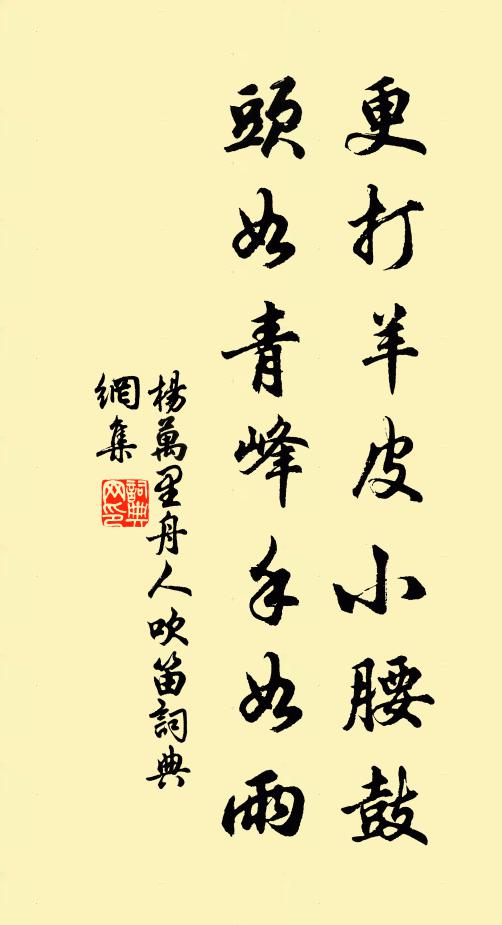 更打羊皮小腰鼓
頭如青峰手如雨
楊萬里舟人吹笛詞典
網集
詞典
网印